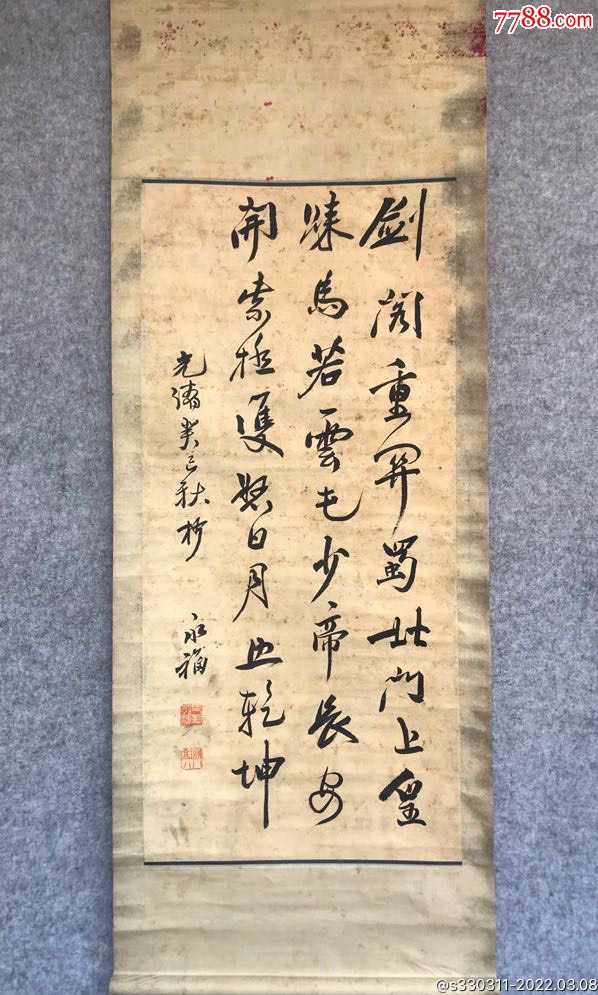 劍閣重關蜀北門上皇
歸馬若雲屯少帝長安
開紫極雙懸日月照乾坤
光緒癸巳秋杪
永福
7788.com
@s330311-2022.03.08